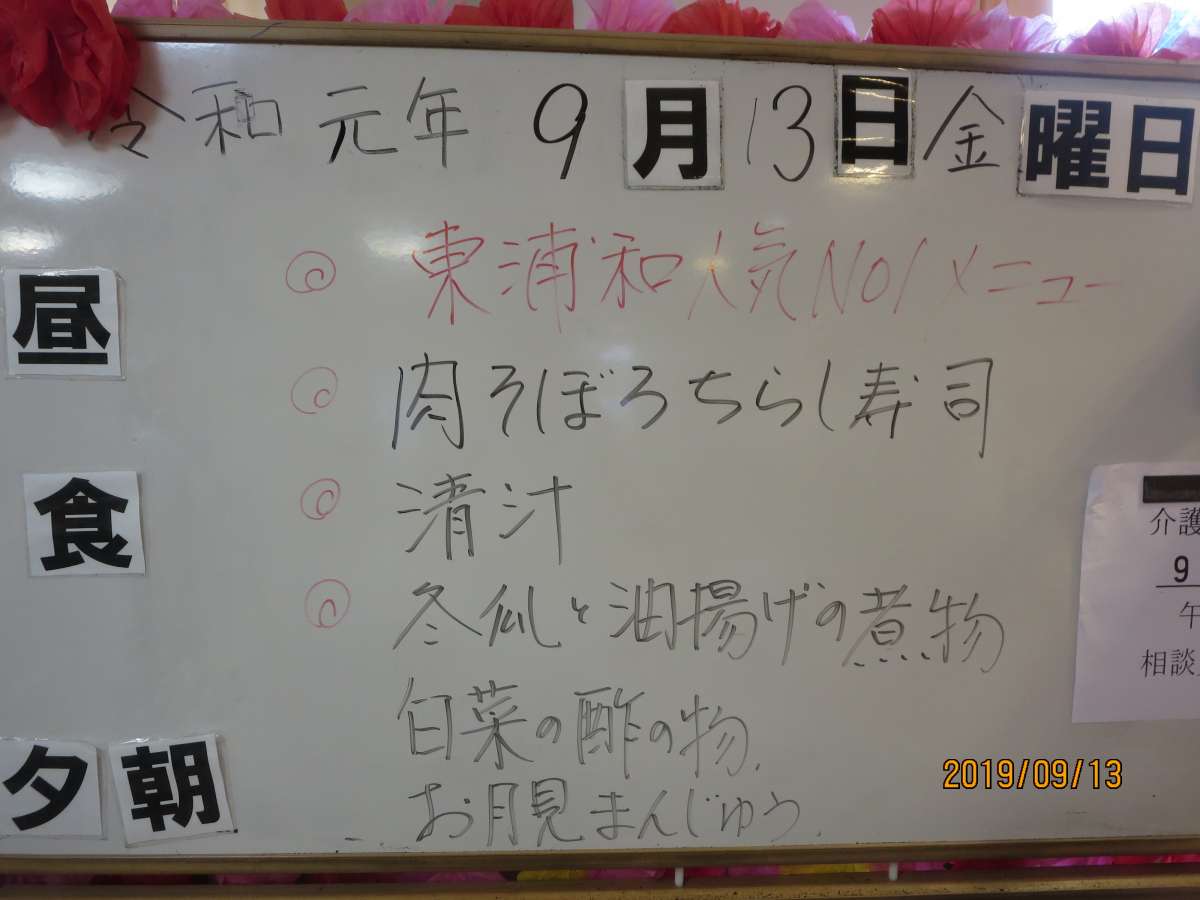 令和元年 9月13日金曜日
◎ 東浦和人気NO1メニュー
◎ 肉そぼろちらし寿司
◎ 清汁
◎ 冬瓜と油揚げの煮物
白菜の酢の物
お月見まんじゅう
昼
食
夕朝
介護
9
午
相談
2019/09/13